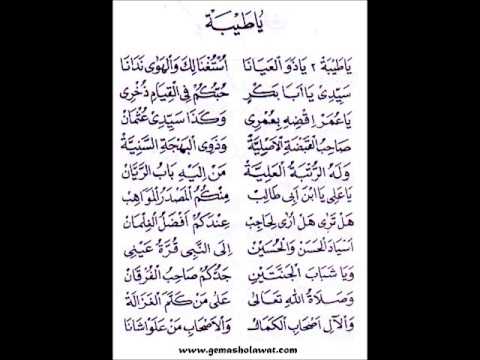 يَا طَيْبَةْ
يَا طَيْبَةْ ٢ يَا ذَوَ الْعَيَانَا اُشْتُقْنَا لِكْ وَالْهَوَى نَدَانَا
سَيِّدِىْ يَا اَبَا بَكْرٍ حُبُّكُمْ فِي الْقِيَامِ ذُخْرِى
يَا عُمَرْ اِقْضِهِ بِعُمْرِى وَكَذَا سَيِّدِىْ عُثْمَانْ
صَاحِبُ الْقَبْضَةِ الْاَصْلِيَّةْ وَذَوِى الْبَهْجَةِ السَّنِيَّةْ
وَلَهُ الرُّتْبَةُ الْعَلِيَّةْ مَنْ اِلَيْهِ بَابُ الرَّيَّانْ
يَا عَلِى يَا ابْنَ اَبِى طَالِبْ مِنْكُمُ الْمَصْدَرُ الْمَوَاهِبْ
هَلْ تَرَى هَلْ اُرَى لِحَاجِبْ عِنْدَكُمْ اَفْضَلُ الْغِلْمَانْ
اَسْيَادِ الْحَسَنْ وَالْحُسَيْنْ اِلَى النَّبِى قُرَّةُ عَيْنِى
وَيَا شَبَابَ الْجَنَّتَيْنِ جَدُّكُمْ صَاحِبُ الْفُرْقَانْ
وَصَلَاةُ اللهِ تَعَالَى عَلَى مَنْ كَلَّمَ الْغَزَالَةْ
وَالْآلِ اَصْحَابِ الْكَمَالْ وَالْاَصْحَابِ مَنْ عَلَوْا شَانَا
www.gemasholawat.com